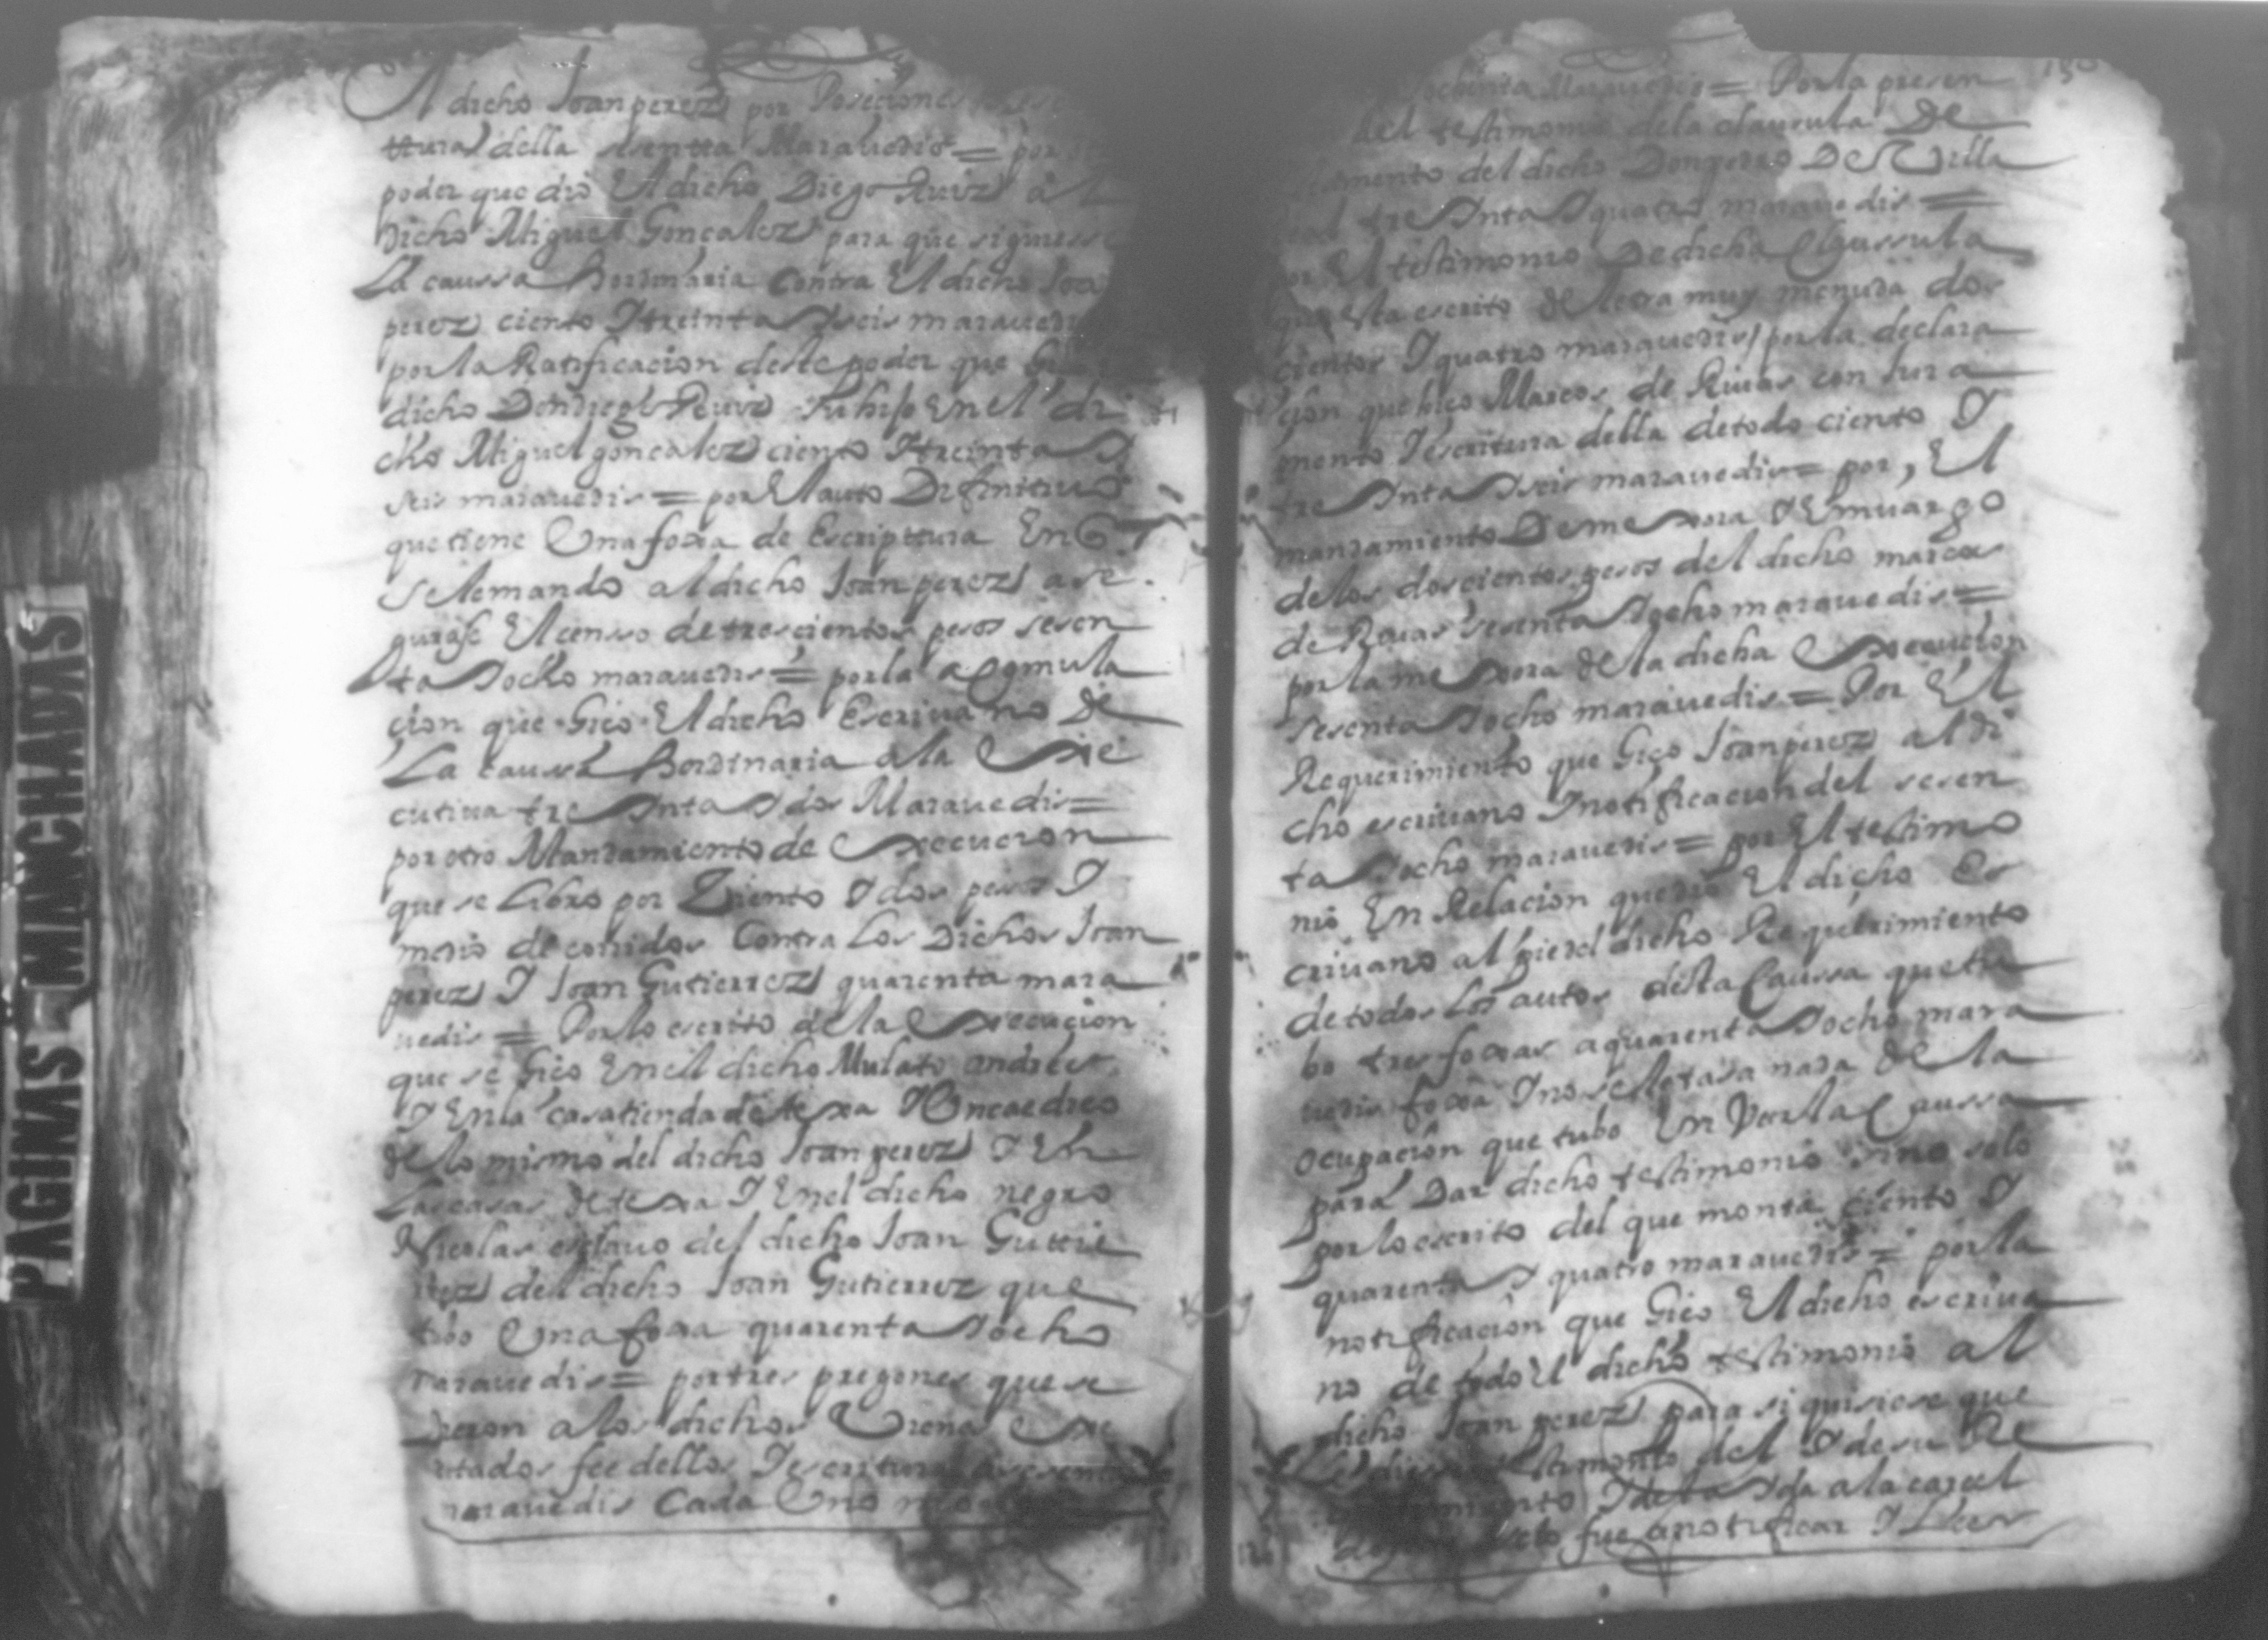 Al dicho Joan perez por Posiciones
tturas della sesentta Maravedis = por
poder que dio El dicho Diego Ruiz al
dicho Miguel Goncalez para que siguiesse
La caussa hordinaria contra El dicho Joa
perez ciento Y treinta Y seis maravedis
por la Ratificacion deste poder que
dicho Don diego Ruiz Su hijo En el di
cho Miguel goncalez ciento Y treinta Y
seis maravedis = por El auto Difinitivo
que tiene Una foxa de Escripttura En
Se le mando al dicho Joan perez ase
gurase El censso de trescientos pesos sesen
ta Y ocho maravedis = por la acomula
cion que hico El dicho Escrivano De
La caussa hordinaria a la Exe
cutiva treinta Y dos Maravedis =
por otro Mandamiento de Execucion
que se Libro por Ziento Y dos pesos Y
medio de corridos Contra Los Dichos Joan
perez Y Joan Gutierrez quarenta mara
vedis = Por lo escrito de la Execucion
que se hico En el dicho Mulato andres
Y En la casa tienda de texa Y
de lo mismo del dicho Joan perez Y En
Las casas de texa Y En el dicho negro
Nicolas esclavo del dicho Joan Guttie
rrez del dicho Joan Gutierrez que
tubo Una foxa quarenta Y ocho
maravedis = por tres pregones que se
dieron a los dichos Viene Exe
cutados fee dellos Y escritura a sesenta
maravedis Cada Uno
150
ochenta Maravedis = Por la presen
del testimonio de la clausula De
tamento del dicho Don pedro De Villa
Real treinta Y quatro maravedis =
por El testimonio De dicha Claussula
que Esta escrito de letra muy menuda dos
cientos Y quatro maravedis / por la declara
cion que hico Marcos de Rivas con Jura
mento Y escritura della de todo ciento Y
treinta Y seis maravedis = por, El
mandamiento De mexora Y Emvargo
de los doscientos pesos del dicho marcos
de Rivas sesenta Y ocho maravedis =
por la mexora de la dicha Execucion
sesenta Y ocho maravedis = Por El
Requerimiento que hico Joan perez al di
cho escrivano Y notificacion del sesen
ta Y ocho maravedis = por El testimo
nio En Relacion que dio El dicho Es
crivano al pie del dicho Requerimiento
de todos Los autos desta Caussa que tu
bo tres foxas a quarenta Y ocho mara
vedis foxa Y no se le tasa nada de la
ocupacion que tubo En Ver la Caussa
para Dar dicho testimonio sino solo
por lo escrito del que monta ciento Y
quarenta Y quatro maravedis = por la
notificacion que hico El dicho escriva
no de todo El dicho testimonio al
dicho Joan perez para si quisiese que
testimonio del Y de su Re
Y de la Yda a la carcel
fue a notificar Y Leer
PAGINAS MANCHADAS